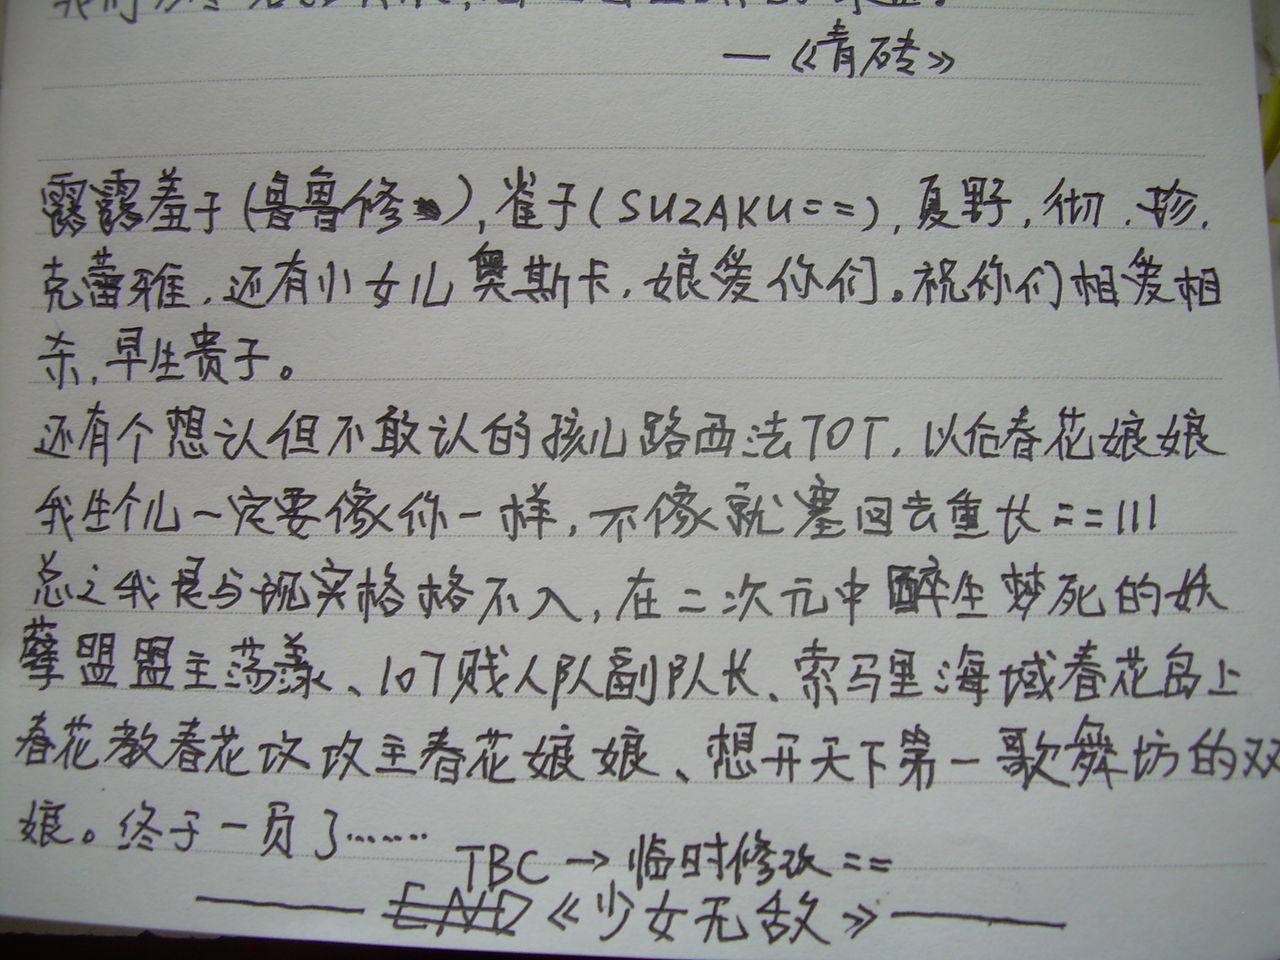 —《青砖》
露露羞于(鲁鲁修),雀于(SUZAKU==),夏野,彻,珍,
克蕾雅,还有小女儿奥斯卡,娘爱你们。祝你们相爱相
杀,早生贵子。
还有个想认但不敢认的孩儿路西法TOT,以后春花娘娘
我生个儿一定要像你一样,不像就塞回去重长==111
总之我是与现实格格不入,在二次元中醉生梦死的妖
孽盟盟主荡漾、107贱人队副队长、索马里海域春花岛上
春花教春花攻攻主春花娘娘、想开天下第一歌舞坊的双
娘。终于一页了……
TBC→临时修改==
END《少女无敌》